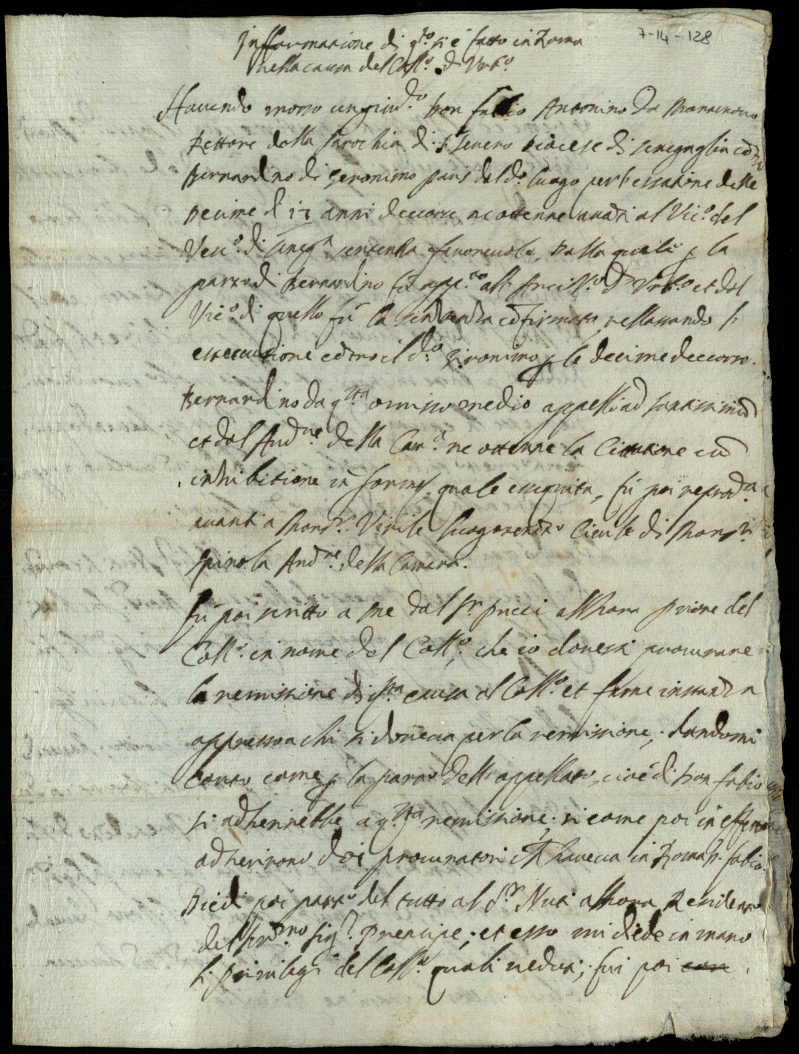 7-14-128
Informatione di q.to si è fatto in Roma
nella causa del Coll.o d'Urb.o
Havendo mosso un giud.o Don Fabio Antonino da
Rettore della Parochia di S. Severo Diocese di Senegaglia contro
Bernardino di Geronimo del d.o luogo per l'essatione delle
Decime di 17 anni decorse ne ottenne avanti al Vic.o del
Vesc.o di Senega sentenza favorevole, dalla quale p la
parte di Bernardino fù app.to all' d'Urb.o et dal
Vic.o di quello fù la sentenza confirmata, rellassando l'
essecutione contro il d.o Gironimo p le decime decorse.
Bernardino da q.sta omisso medio appellò ad
et dal Aud.re della Cam.a ne ottenne la Citatione cum
inhibitione in forma quale esseguita, fù poi reprod.a
avanti a Mons.r Virile luogotenente Civile di Mons.r
Spinola Aud.re della Camera.
Fù poi scritto a me dal S.r Pucci allhora priore del
Coll.o in nome del Coll.o, che io dovessi procurare
la remissione di q.sta causa al Coll.o et farne instanza
appresso a chi si doveva per la remissione, dandomi
conto come p la parte dell appellato, cioè di Don Fabio
si adherirebbe a q.sta remissione, si come poi in effetto
adherirono doi procuratori ch haveva in Roma D. Fabio.
Diedi poi parte del tutto al S.r Nuti allhora Residente
del Ser.mo Sig.r Principe, et esso mi diede in mano
li privilegi del Coll.o quali veduti, fui poi con